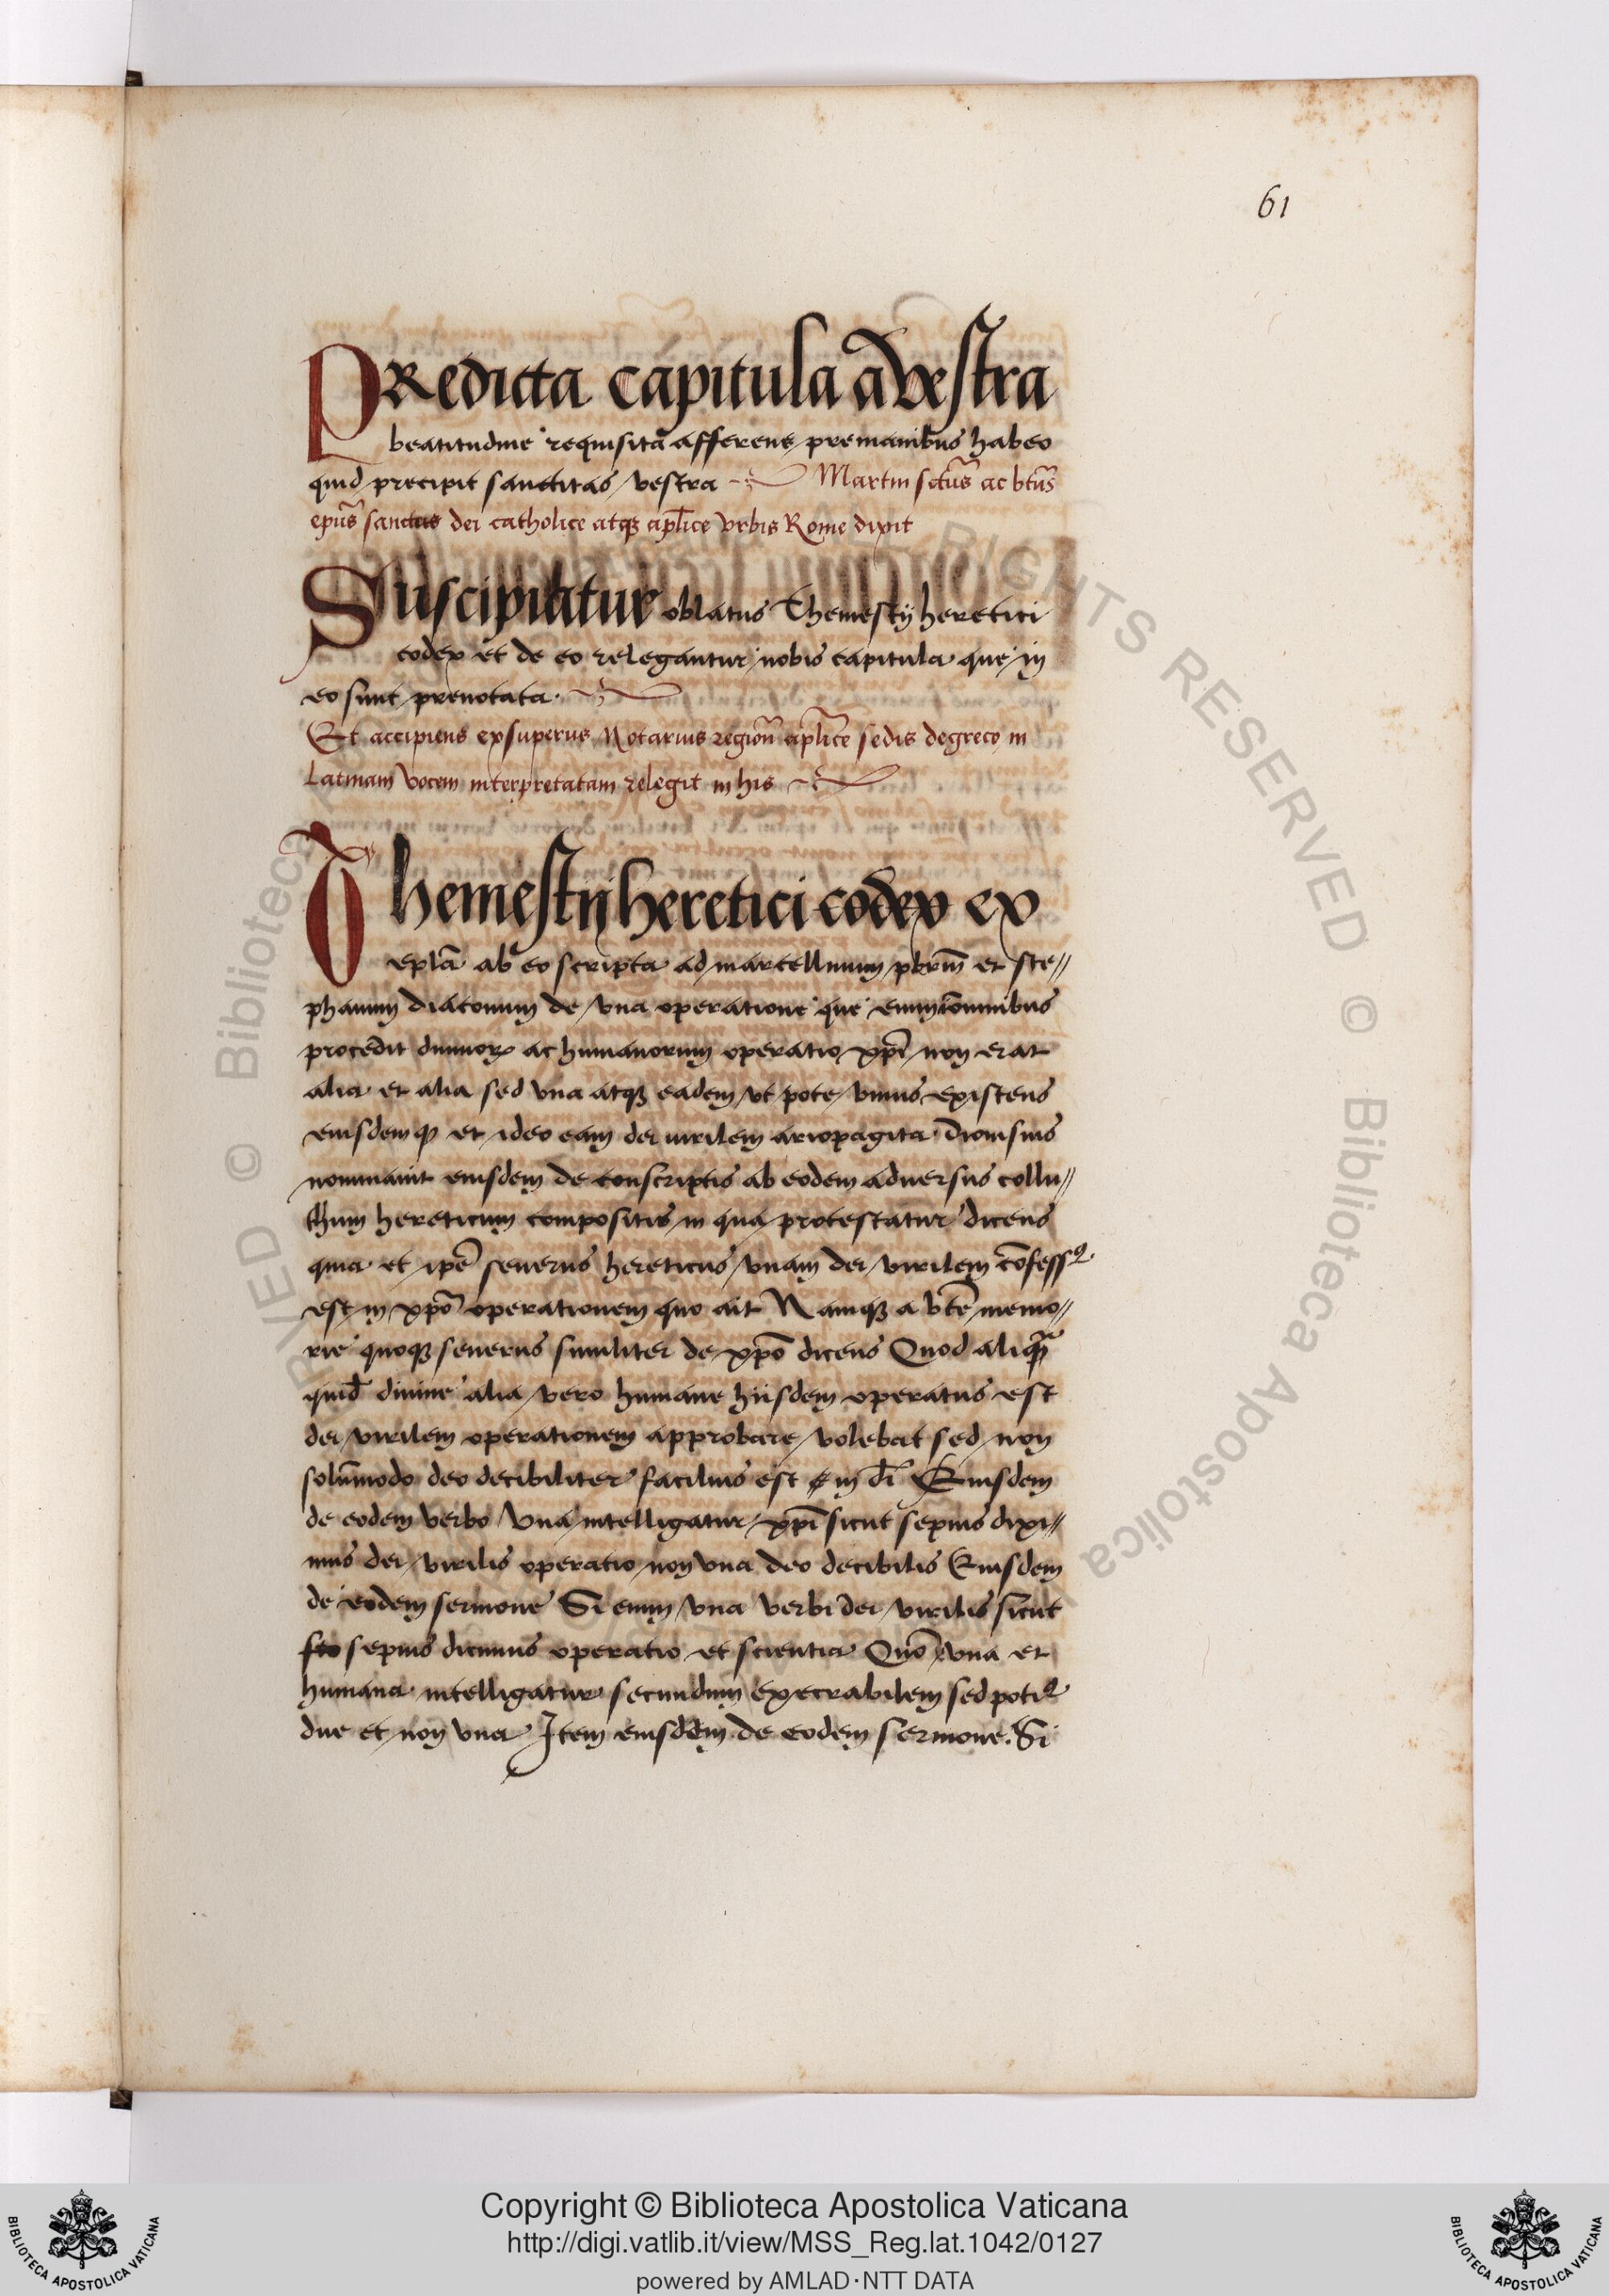 61
PRedicta capitula a vestra
beatitudine requisita afferens pre manibus habeo
quid precipit sanctitas vestra Martin sctũs ac btũs
epũs sanctae dei catholice atqꝫ aplĩce vrbis Rome dixit
Suscipiatur oblatus Themestij heretici
codex et de eo relegantur nobis capitula que in
eo sunt prenotata.
Et accipiens exsuperus Notarius regionũ aplĩce sedis de greco in
Latinam vocem interpretatam relegit in his
Themestij heretici codex ex
eplã ab eo scripta ad marcellinum pbrm̃ et ste//
phanum diaconum de vna operatione que enim in omnibus
procedit diuinoꝝ ac humanorum operatio xpĩ non erat
alia et alia sed vna atqꝫ eadem vt pote vnius existens
eiusdemqꝫ et ideo eam dei uirilem ariopagita Dionisius
nominauit eiusdem de conscriptis ab eodem aduersus collu//
thum hereticum compositis in qua protestatur dicens
quia et ipẽ seuerus hereticus vnam dei virilem cõfessꝰ
est in xpõ operationem quo ait Namqꝫ a btẽ memo//
rie quoqꝫ seuerus similiter de xpõ dicens Quod aliqũ
quid̃ diuine alia vero humane hijsdem operatus est
dei virilem operationem approbare volebat sed non
solũmodo deo decibiliter facilius est in dĩ Eiusdem
de eodem verbo vna intelligatur xpĩ sicut sepius dixi//
mus dei virilis operatio non vna deo decibilis Eiusdem
de eodem sermone Si enim vna verbi dei virilis sicut
sepius dicimus operatio et scientia Quõ vna et
humana intelligatur secundum execrabilem sed potiꝰ
due et non vna Item eiusdem de eodem sermone. Si
© Biblioteca Apostolica ALL RIGHTS RESERVED © Biblioteca Apostolica
Copyright © Biblioteca Apostolica Vaticana
http://digi.vatlib.it/view/MSS_Reg.lat.1042/0127
powered by AMLAD·NTT DATA
BIBLIOTECA APOSTOLICA VATICANA
BIBLIOTECA APOSTOLICA VATICANA